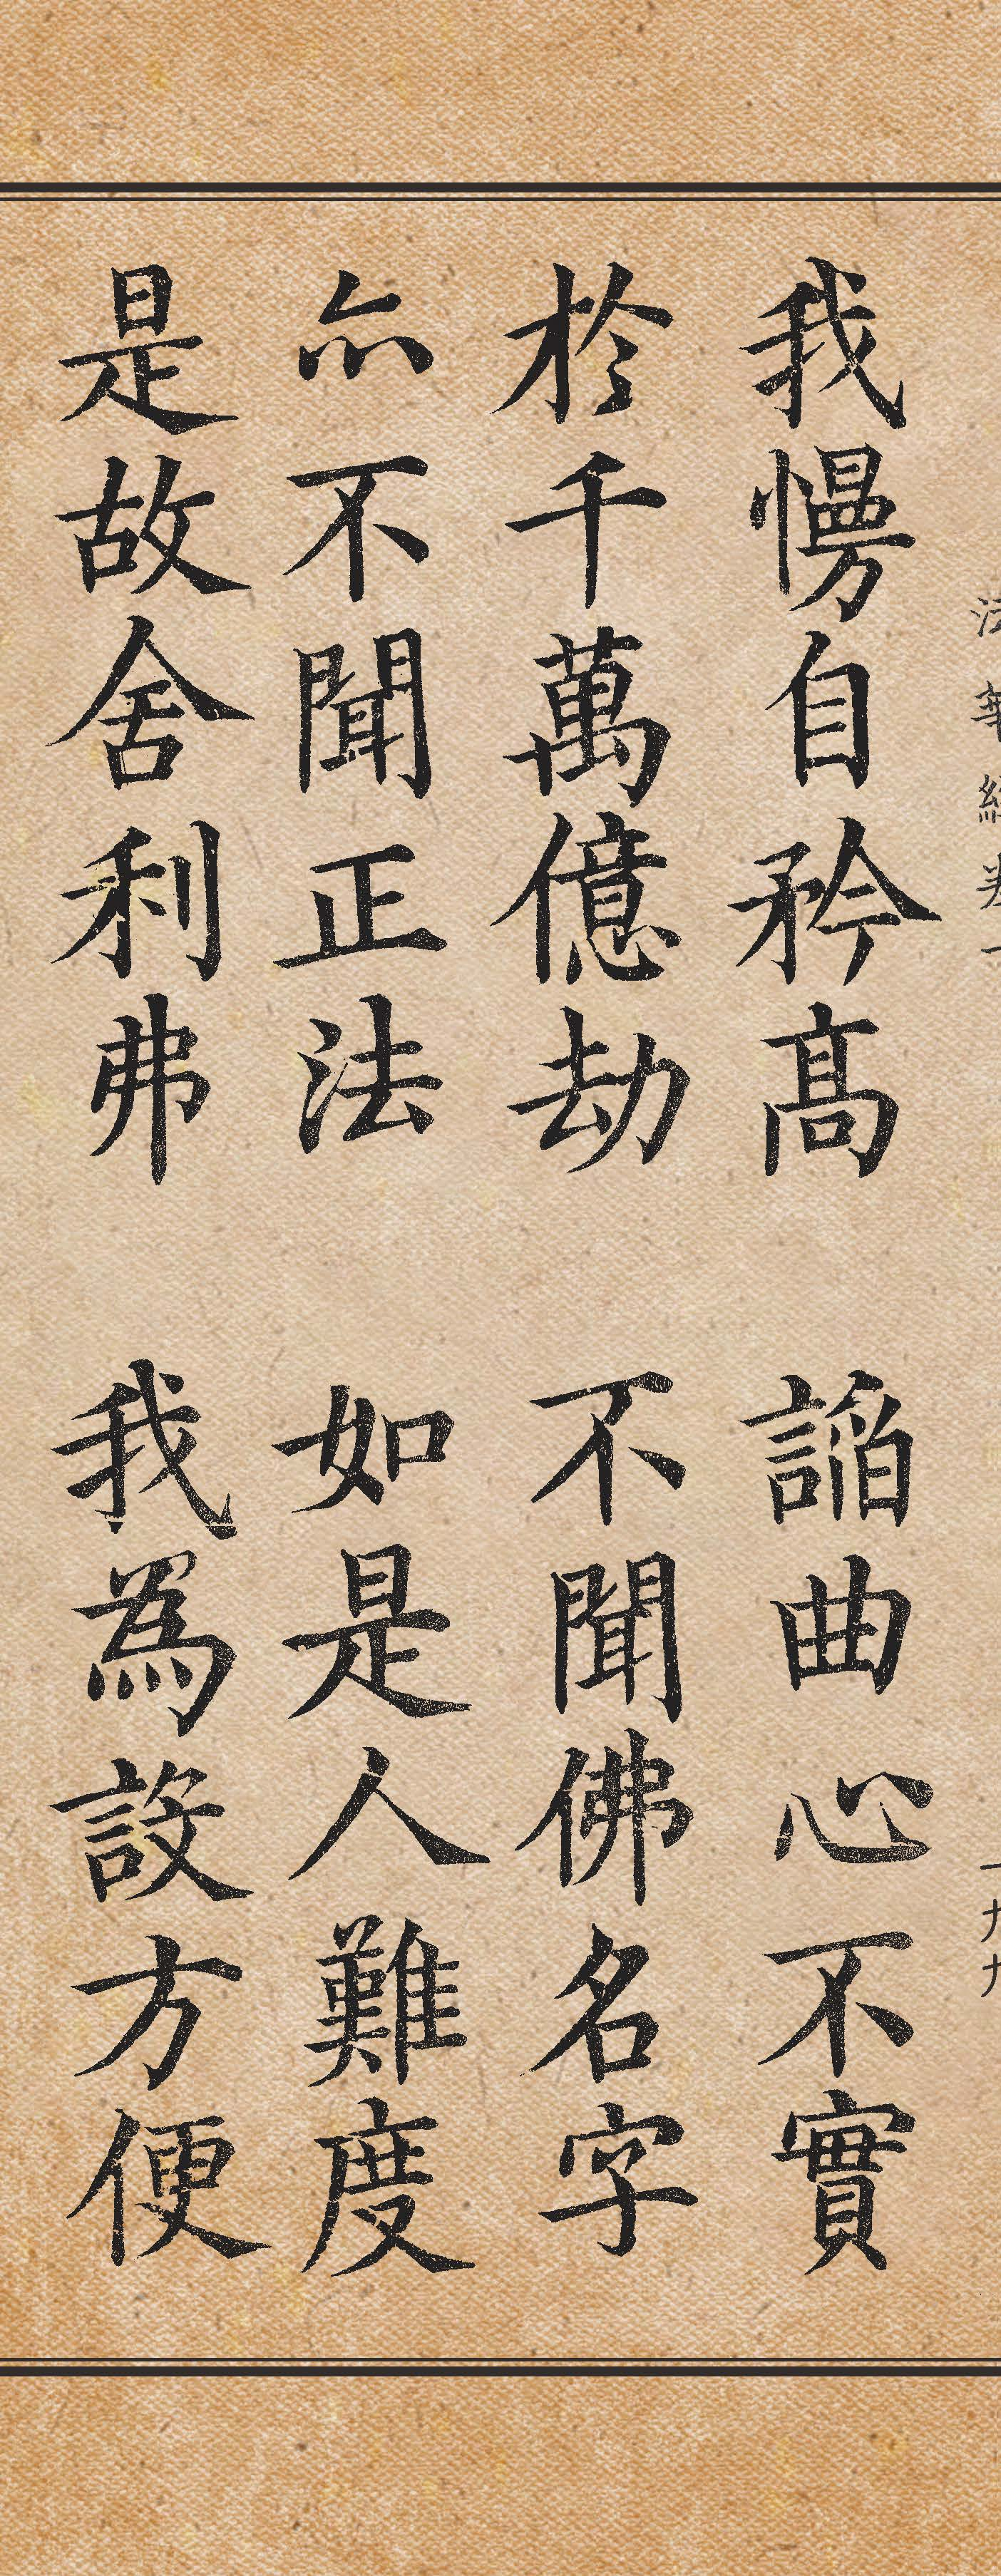 我慢自矜高　諂曲心不實
於千萬億劫　不聞佛名字
亦不聞正法　如是人難度
是故舍利弗　我為設方便